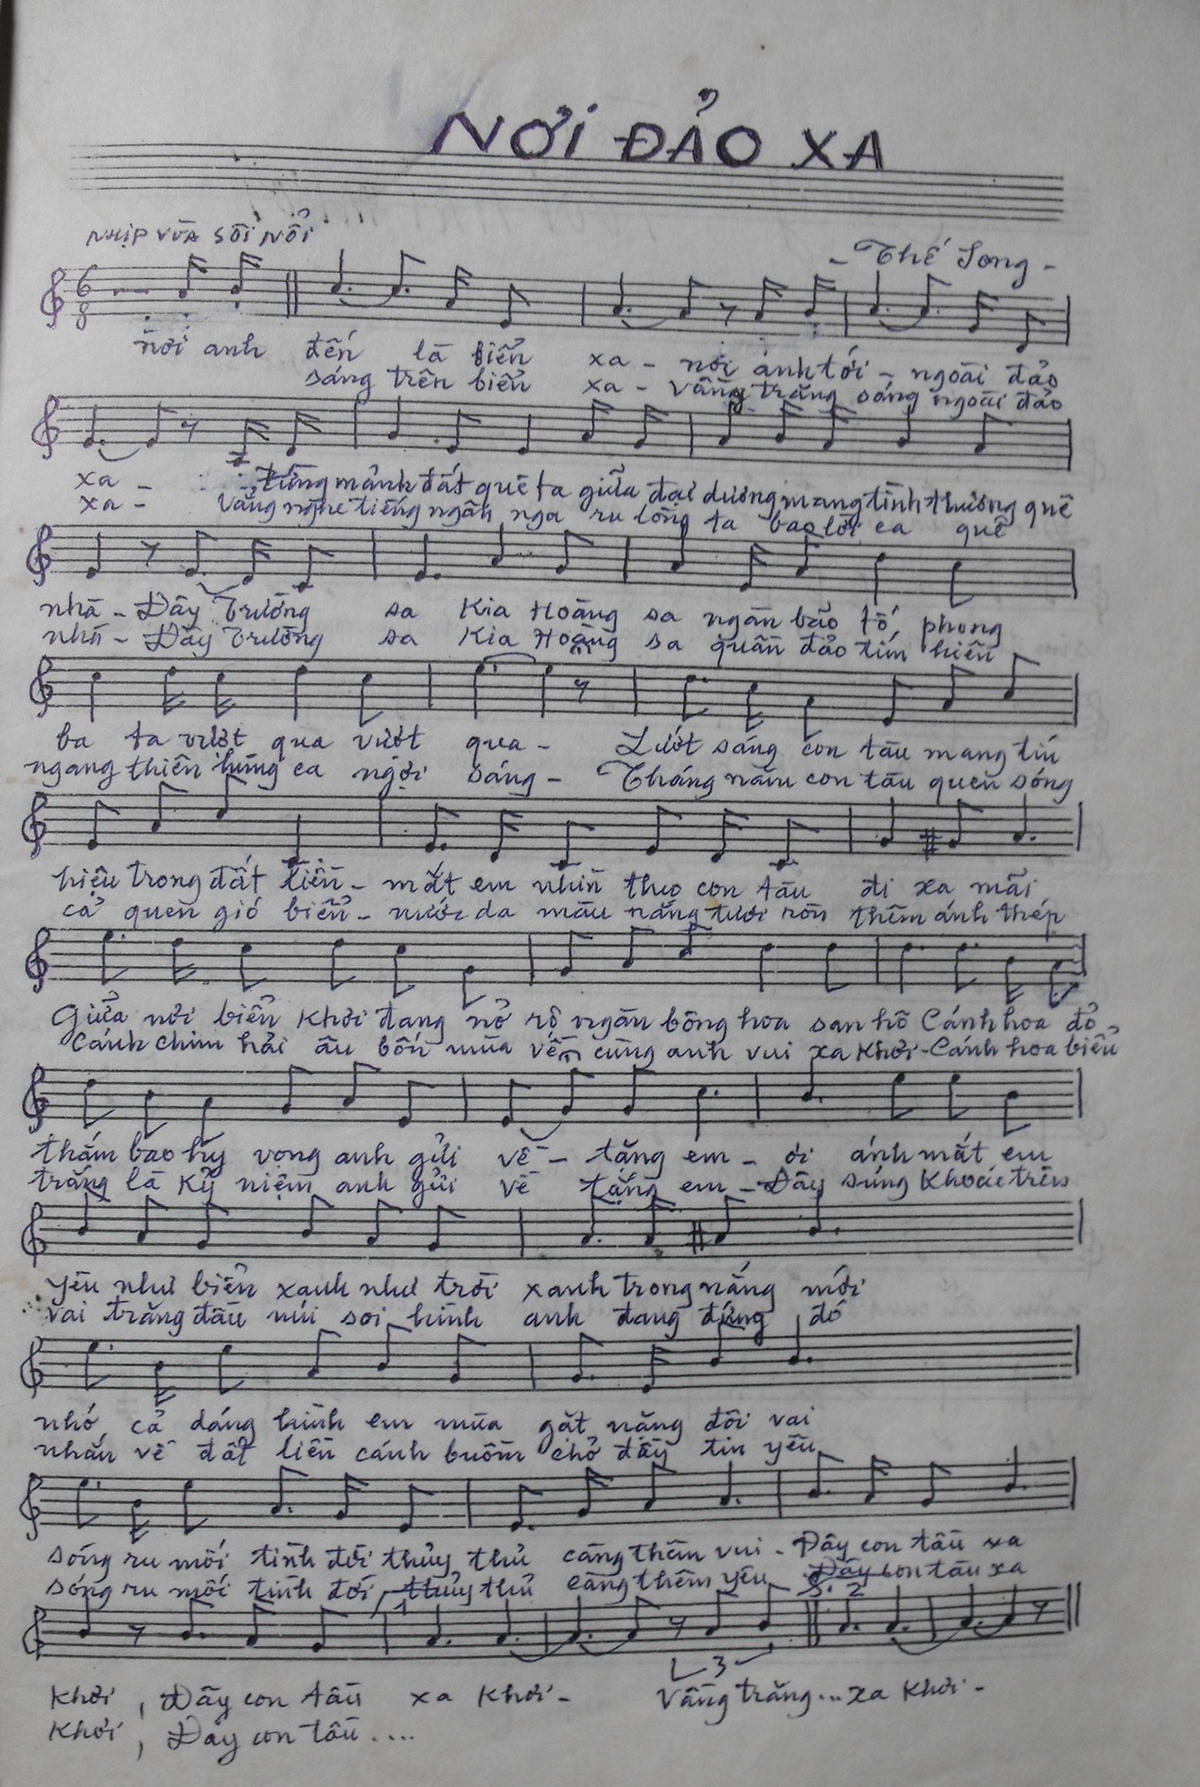 NƠI ĐẢO XA
NHỊP VỪA SÔI NỔI
- Thế Song -
6
8
nơi anh đến là biển xa - nơi anh tới - ngoài đảo
sáng trên biển xa - vầng trăng sáng ngoài đảo
xa - từng mảnh đất quê ta giữa đại dương mang tình thương quê
xa - vẳng nghe tiếng ngân nga ru lòng ta bao lời ca quê
nhà - Đây Trường sa Kia Hoàng sa ngàn bão tố phong
nhà - Đây Trường sa Kia Hoàng sa quần đảo tím hiên
ba ta vượt qua vượt qua - Lướt sóng con tàu mang tín
ngang thiên hùng ca ngời sáng - Tháng năm con tàu quen sóng
hiệu trong đất liền - mắt em nhìn theo con tàu đi xa mãi
cả quen gió biển - nước da màu nắng tươi ròn thêm ánh thép
Giữa nơi biển khơi đang nở rộ ngàn bông hoa san hô Cánh hoa đỏ
Cánh chim hải âu bốn mùa về cùng anh vui xa khơi - Cánh hoa biển
thắm bao hy vọng anh gửi về - tặng em - ơi ánh mắt em
trắng là kỷ niệm anh gửi về tặng em - Đây súng khoác trên
yêu như biển xanh như trời xanh trong nắng mới
vai trăng đầu núi soi hình anh đang đứng đó
nhớ cả dáng hình em mùa gặt nặng đôi vai
nhắn về đất liền cánh buồm chở đầy tin yêu
sóng ru mối tình đời thủy thủ càng thêm vui - Đây con tàu xa
sóng ru mối tình đời, thủy thủ càng thêm yêu Đây con tàu xa
1 2
3
Khơi, Đây con tàu xa khơi - Vầng trăng... xa khơi -
Khơi, Đây con tàu ....